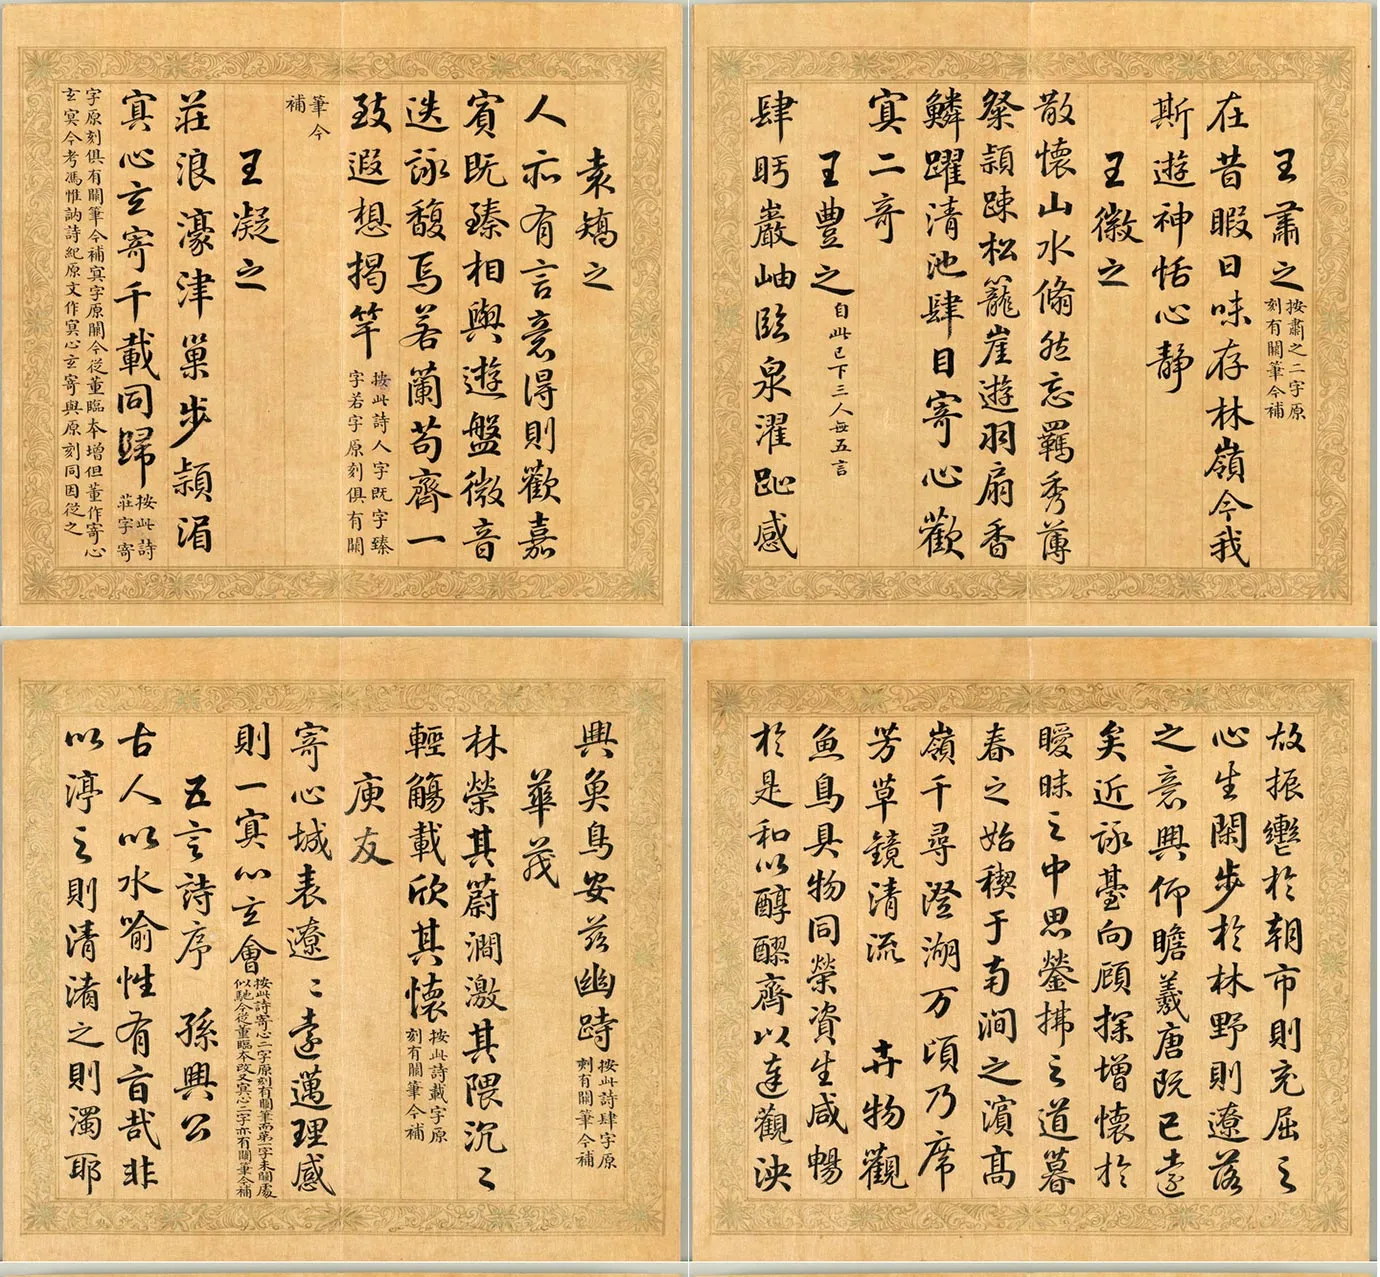 袁嶠之
人亦有言意得則歡嘉
賓既臻相與遊盤微音
迭詠馥焉若蘭苟齊一
致遐想揭竿
按此詩人字既字臻
字若字原刻俱有闕
筆今
補
王凝之
莊浪濠津巢步潁湄
冥心玄寄千載同歸
按此詩
莊字寄
字原刻俱有闕筆今補冥字原闕今從董臨本增但董作寄心
玄冥今考馮惟訥詩紀原文作冥心玄寄與原刻同因從之
王肅之
按肅之二字原
刻有闕筆今補
在昔暇日味存林嶺今我
斯遊神恬心靜
王徽之
散懷山水翛然忘羈秀薄
粲潁疎松籠崖遊羽扇香
鱗躍清池肆目寄心歡
冥二奇
王豐之
自此已下三人無五言
肆眄巖岫臨泉濯趾感
興魚鳥安茲幽跱
按此詩肆字原
刻有闕筆今補
華茂
林榮其蔚澗激其隈沉〻
輕觴載欣其懷
按此詩載字原
刻有闕筆今補
庾友
寄心域表遼〻遠邁理感
則一冥心玄會
按此詩寄心二字原刻有闕筆而第一字未闕處
似馳今從董臨本改又冥心二字亦有闕筆今補
五言詩序 孫興公
古人以水喻性有旨哉非
以渟之則清淆之則濁耶
故振轡於朝市則充屈之
心生閑步於林野則遼落
之意興仰瞻羲唐既已遠
矣近詠臺向顧探增懷於
曖昧之中思縈拂之道暮
春之始禊于南澗之濱高
嶺千尋澄湖万頃乃席
芳草鏡清流 卉物觀
魚鳥具物同榮資生咸暢
於是和以醇醪齊以達觀泱